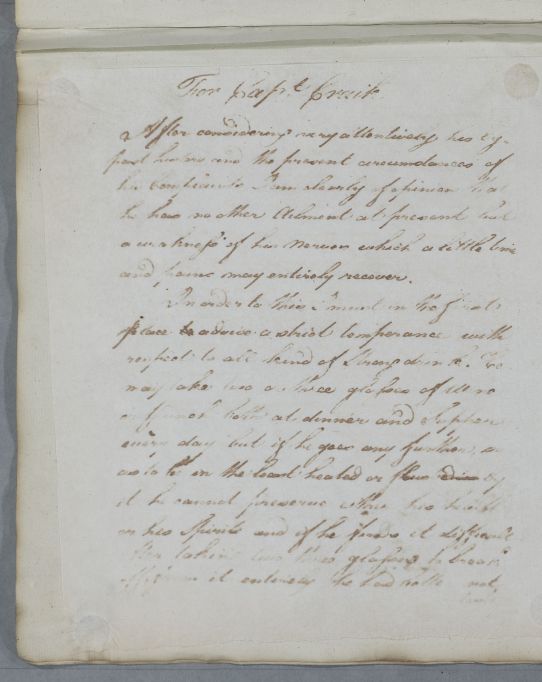 For Capt. Craik
After considering very attentively his ex-
past history and the present circumstances of
his Complaints I am clearly of opinion that
he has no other Ailment at present but
a weakness of his Nerves which a little time
and pains may entirely recover.
In order to this I must in the first
place to advise a strict temperance with
respect to all kind of Strong drink. He
may take two or three glasses of Wine
or Punch both at dinner and Supper
every day but if he goes any further, or
as to be in the least heated or by
it he cannot preserve his health
or his Spirits and if he finds it difficult
after taking two three glasses to break
off from it entirely he had not